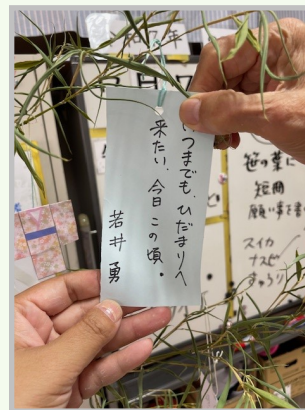 いつまでも、ひだまりへ
来たい、今日この頃。
若井 勇
笹の葉に
短冊
願い事を
スイカ
ナスビ
きゅうり